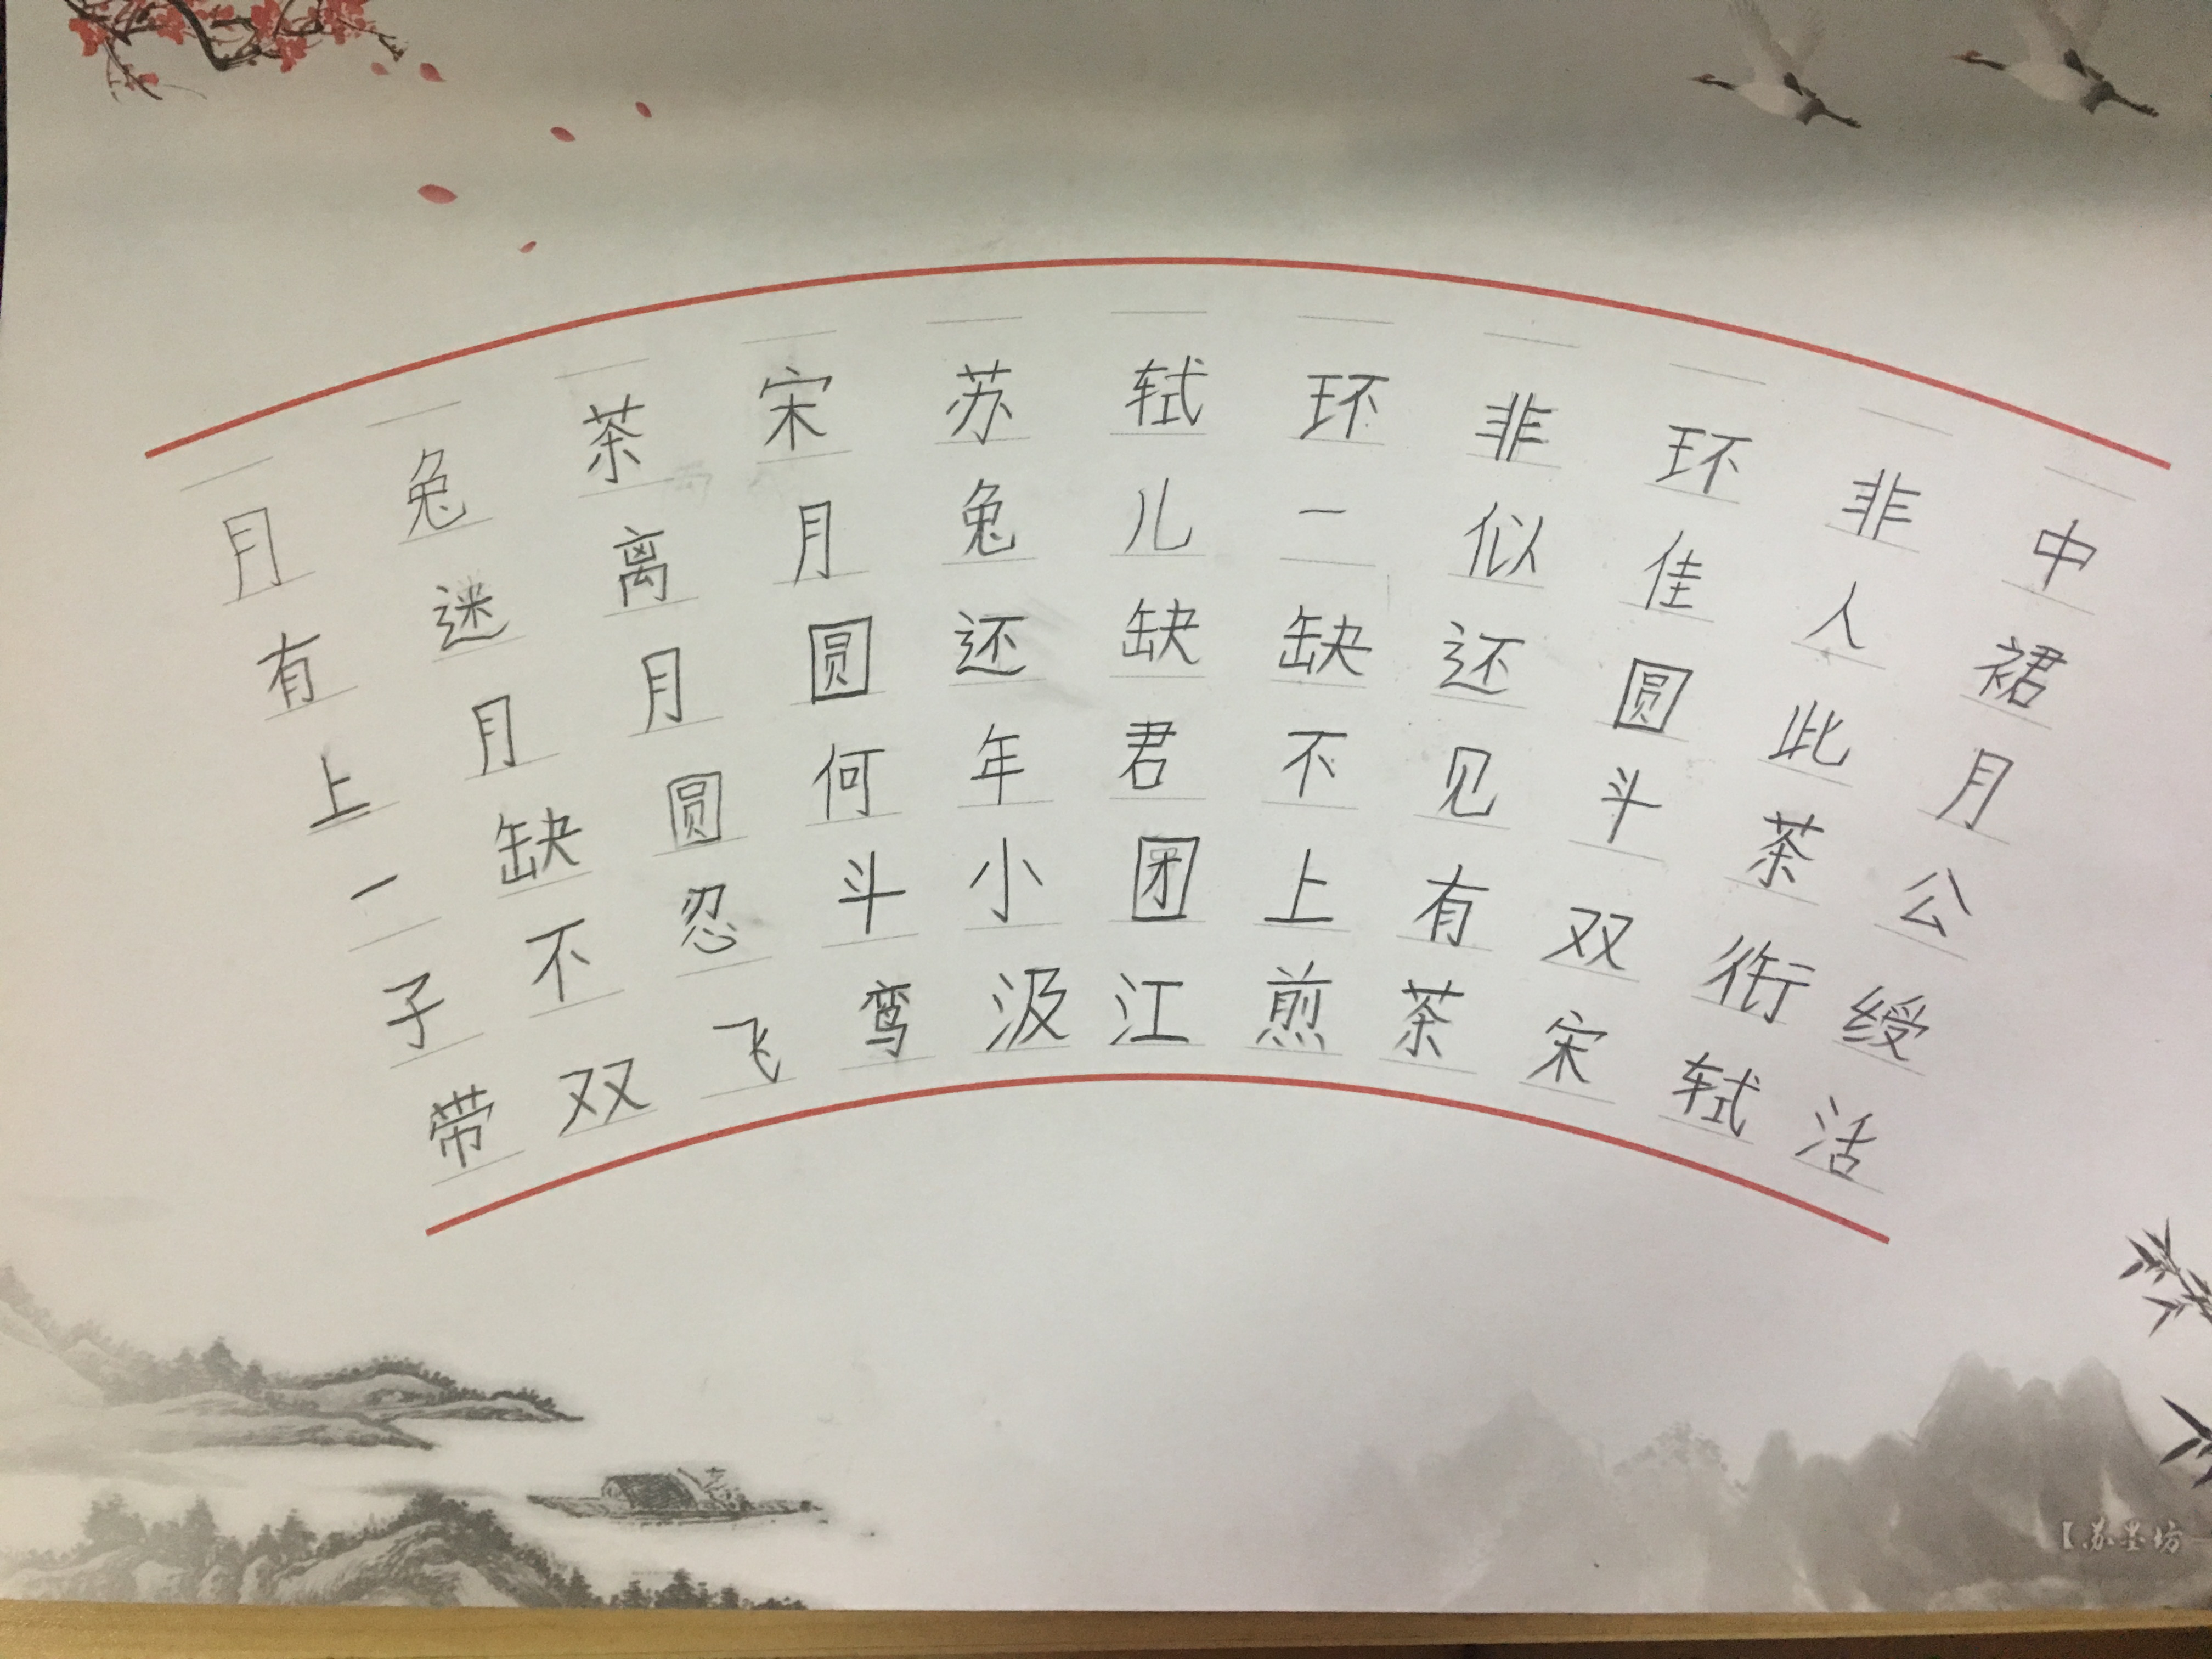 月兔茶宋苏轼环非环非中
有迷离月兔儿一似佳人裙
上月月圆还缺缺还圆此月
一缺圆何年君不见斗茶公
子不忍斗小团上有双衔绶
带双飞鸾汲江煎茶宋轼活
【苏墨坊